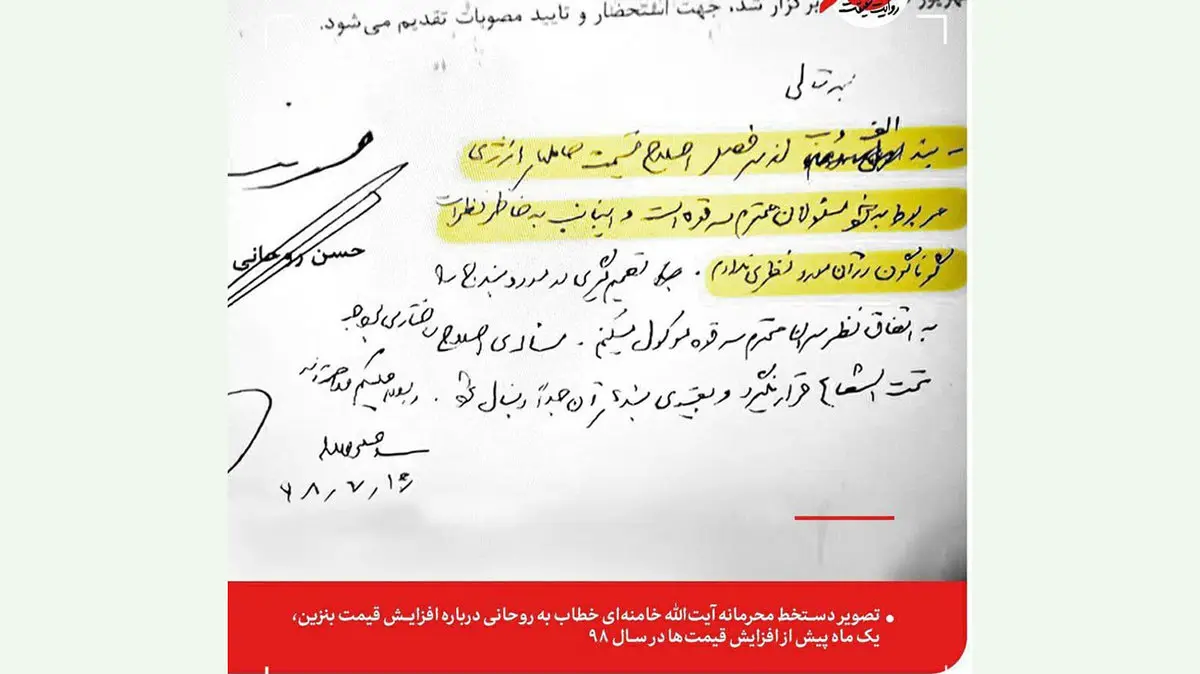 برگزار شد، جهت استحضار و تایید مصوبات تقدیم می‌شود.
روایت
بسمه تعالی
- بند الف از سرفصل اصلاح قیمت حاملهای انرژی
مربوط به مسئولان محترم سه قوه است و اینجانب به خاطر نظرات
گوناگون در آن مورد نظری ندارم. تصمیم‌گیری در مورد بند ج را
به اتفاق نظر سران محترم سه قوه موکول میکنم. اصلاح ساختاری بودجه
تحت الشعاع قرار نگیرد و آن جداً دنبال شود. والسلام علیکم و رحمة الله
۹۸٫۷٫۱۶
حسن روحانی
• تصویر دستخط محرمانه آیت‌الله خامنه‌ای خطاب به روحانی درباره افزایش قیمت بنزین،
یک ماه پیش از افزایش قیمت‌ها در سال ۹۸